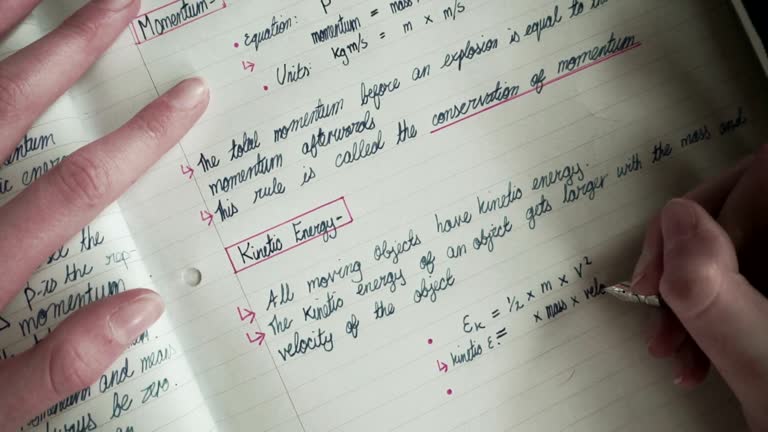 Momentum-
• Equation: P
↳ momentum = mass
• Units: kgm/s = m x m/s
↳ The total momentum before an explosion is equal to the
momentum afterwards
↳ This rule is called the conservation of momentum
Kinetic Energy-
↳ All moving objects have kinetic energy.
↳ The kinetic energy of an object gets larger with the mass and
velocity of the object
• Eκ = ½ x m x v²
↳ kinetic E = x mass x velo
•
the
P-is the rep
momentum
and
be zero.